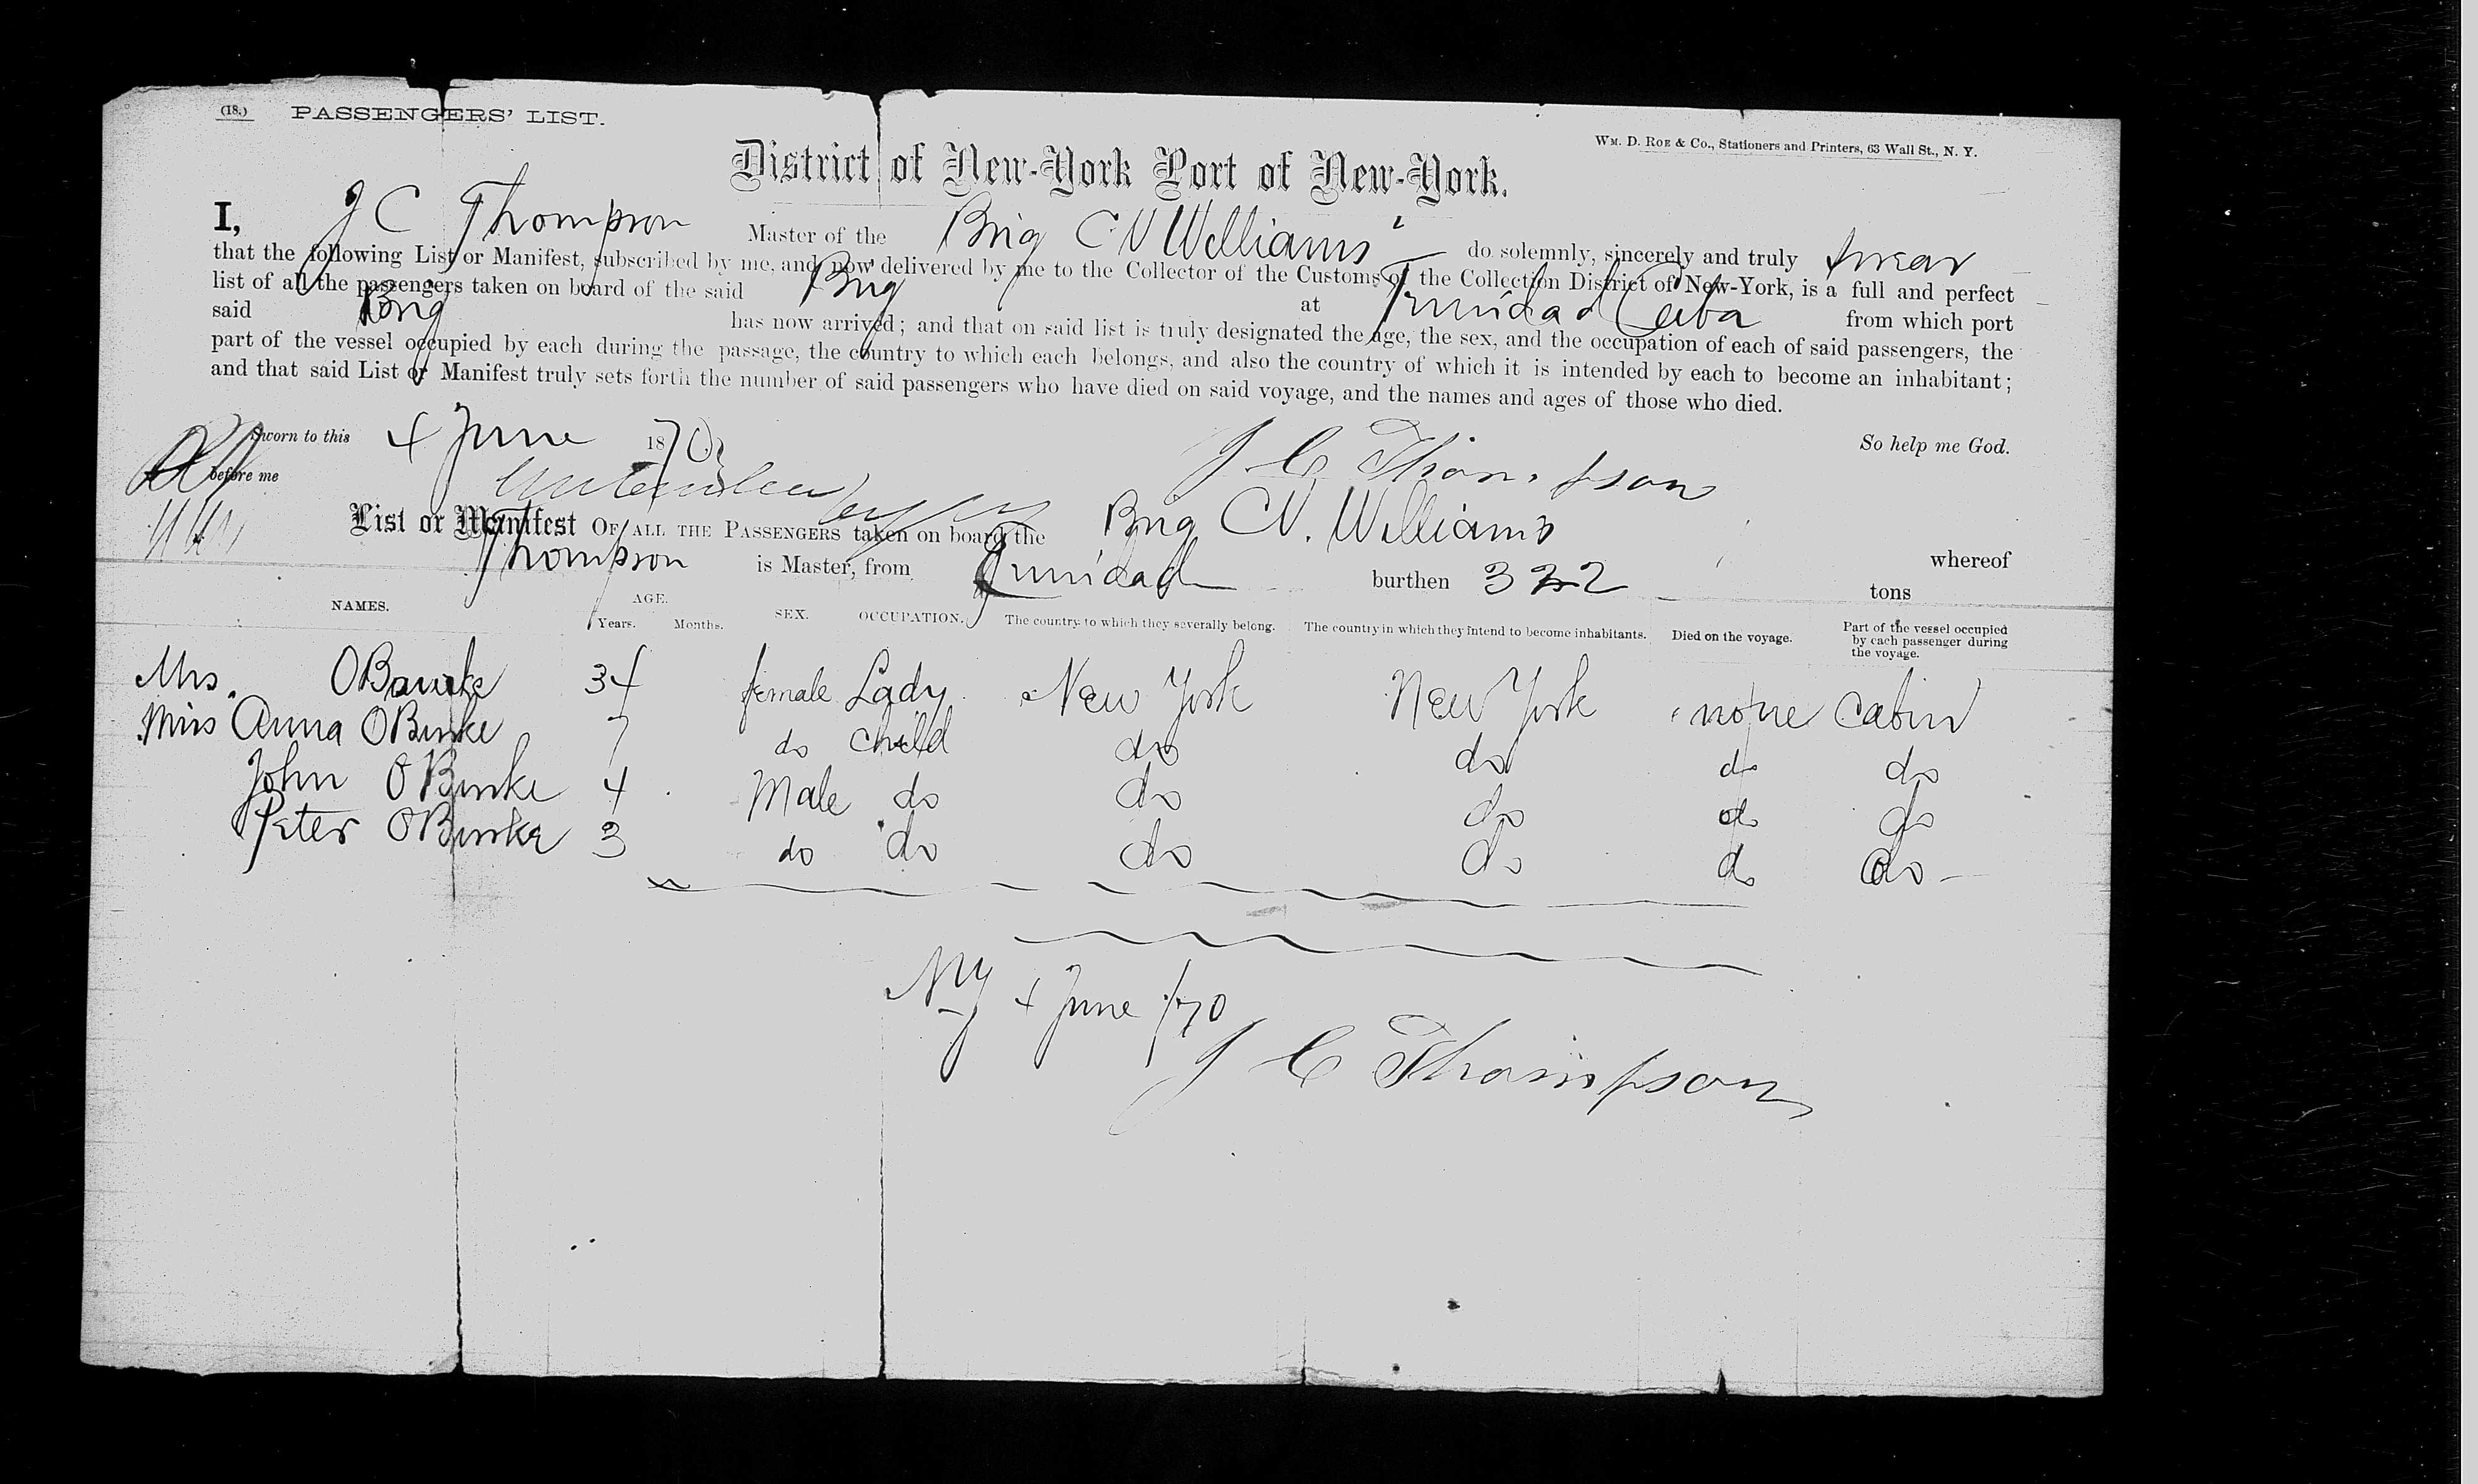 (18.) PASSENGERS' LIST.
WM. D. ROE & CO., Stationers and Printers, 63 Wall St., N. Y.
District of New-York Port of New-York.
I, J C Thompson Master of the Brig C V Williams do solemnly, sincerely and truly swear
that the following List or Manifest, subscribed by me, and now delivered by me to the Collector of the Customs of the Collection District of New-York, is a full and perfect
list of all the passengers taken on board of the said Brig at Trinidad Cuba from which port
said Brig has now arrived; and that on said list is truly designated the age, the sex, and the occupation of each of said passengers, the
part of the vessel occupied by each during the passage, the country to which each belongs, and also the country of which it is intended by each to become an inhabitant;
and that said List or Manifest truly sets forth the number of said passengers who have died on said voyage, and the names and ages of those who died.
Sworn to this 4 June 1870
So help me God.
before me
J C Thompson
List or Manifest OF ALL THE PASSENGERS taken on board the Brig C V. Williams whereof
Thompson is Master, from Trinidad burthen 322 tons
NAMES. AGE. Years. Months. SEX. OCCUPATION. The country to which they severally belong. The country in which they intend to become inhabitants. Died on the voyage. Part of the vessel occupied by each passenger during the voyage.
Mrs. 34 female Lady New York New York none Cabin
Miss Anna OBurke 7 do child do do do do
John OBurke 4 Male do do do do do
Peter OBurke 3 do do do do do do
NY 4 June /70
J C Thompson